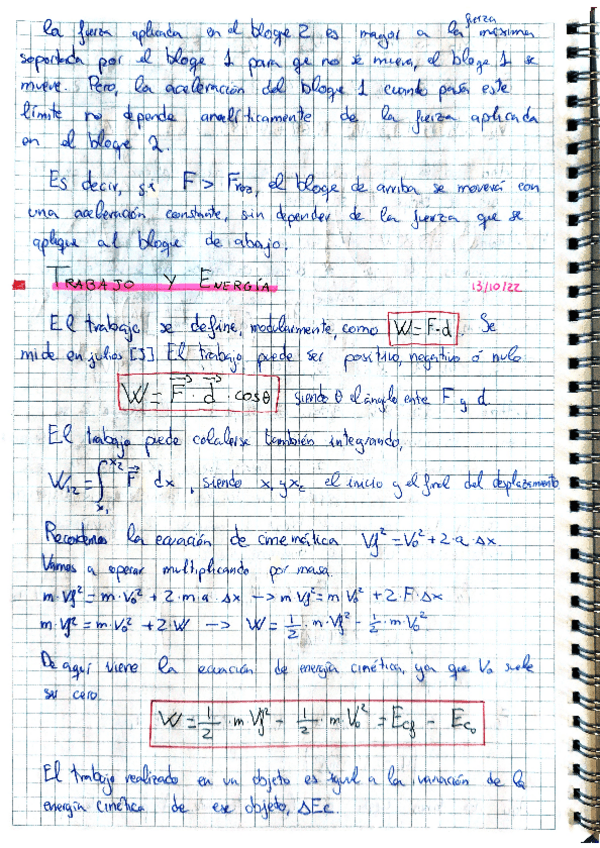 la fuerza aplicada en el bloque 2 es mayor a la fuerza máxima
soportada por el bloque 1 para qe no se mueva, el bloqe 1 se
mueve. Pero, la aceleración del bloqe 1 cuando pasa este
límite no depende analíticamente de la fuerza aplicada
en el bloque 2.
Es decir, si F > Froz, el bloqe de arriba se moverá con
una aceleración constante, sin depender de la fuerza que se
aplique al bloque de abajo.
TRABAJO Y ENERGÍA 13/10/22
El trabajo se define, modularmente, como W = F·d. Se
mide en julios [J]. El trabajo puede ser positivo, negativo ó nulo.
W = F⃗ · d⃗ · cosθ siendo θ el ángulo ente F y d.
El trabajo puede calcularse también integrando,
W₁₂ = ∫ₓ₁ˣ² F⃗ dx, siendo x₁ y x₂ el inicio y el final del desplazamiento
Recordemos la ecuación de cinemática Vf² = V₀² + 2·a·Δx.
Vamos a operar multiplicando por masa.
m·Vf² = m·V₀² + 2·m·a·Δx → m Vf² = m V₀² + 2·F·Δx
m·Vf² = m·V₀² + 2·W → W = 1/2·m·Vf² - 1/2·m·V₀².
De aquí viene la ecuación de energía cinética, ya que V₀ suele
ser cero.
W = 1/2·m·Vf² - 1/2·m·V₀² = Ecf - Ec₀
El trabajo realizado en un objeto es igual a la variación de la
energía cinética de ese objeto, ΔEc.